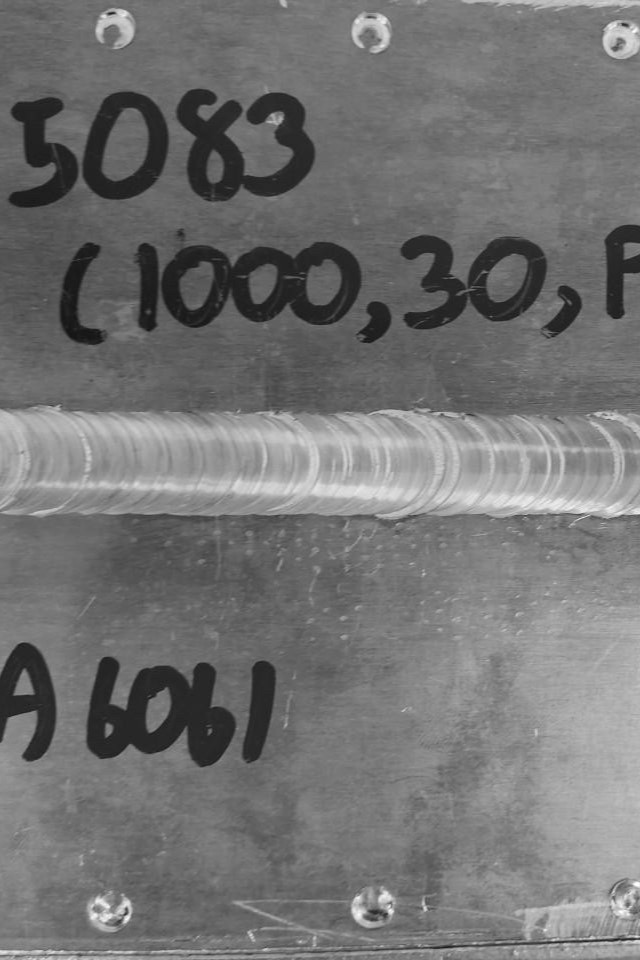 5083
(1000,30,P
A6061